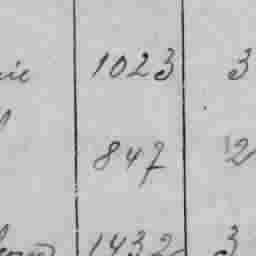 1023 3
847 2
1432 3